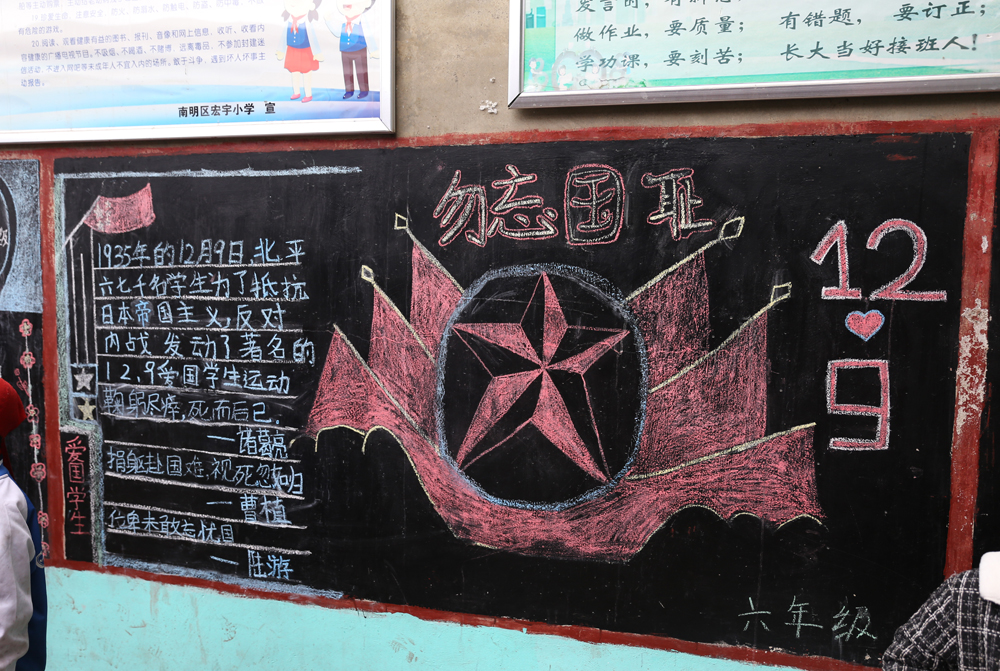 有危险的游戏。
20 阅读、观看健康有益的图书、报刊、音像和网上信息，收听、收看内
容健康的广播电视节目。不吸烟、不喝酒、不赌博，远离毒品，不参加封建迷
信活动，不进入网吧等未成年人不宜入内的场所。敢于斗争，遇到坏人坏事主
动报告。
南明区宏宇小学 宣
做作业，要质量； 有错题，要订正；
学功课，要刻苦； 长大当好接班人！
勿忘国耻
12
9
1935年的12月9日,北平
六七千名学生为了抵抗
日本帝国主义,反对
内战 发动了著名的
12.9爱国学生运动
鞠躬尽瘁,死而后已.
——诸葛亮
捐躯赴国难,视死忽如归
——曹植
位卑未敢忘忧国
——陆游
爱国学生
六年级